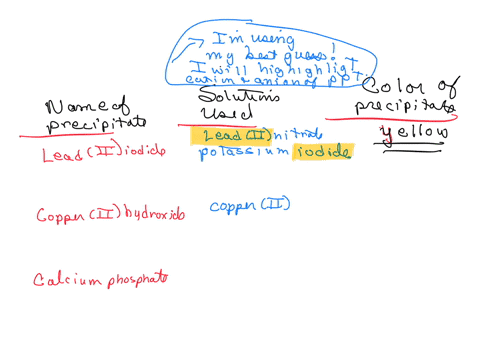 I'm using
my best guess!
I will highlight
cation & anion of ppt.
Name of
precipitate
Solutions
Used
Color of
precipitate
Lead (II) iodide
Lead (II) nitrate
potassium iodide
yellow
Copper (II) hydroxide
copper (II)
Calcium phosphate